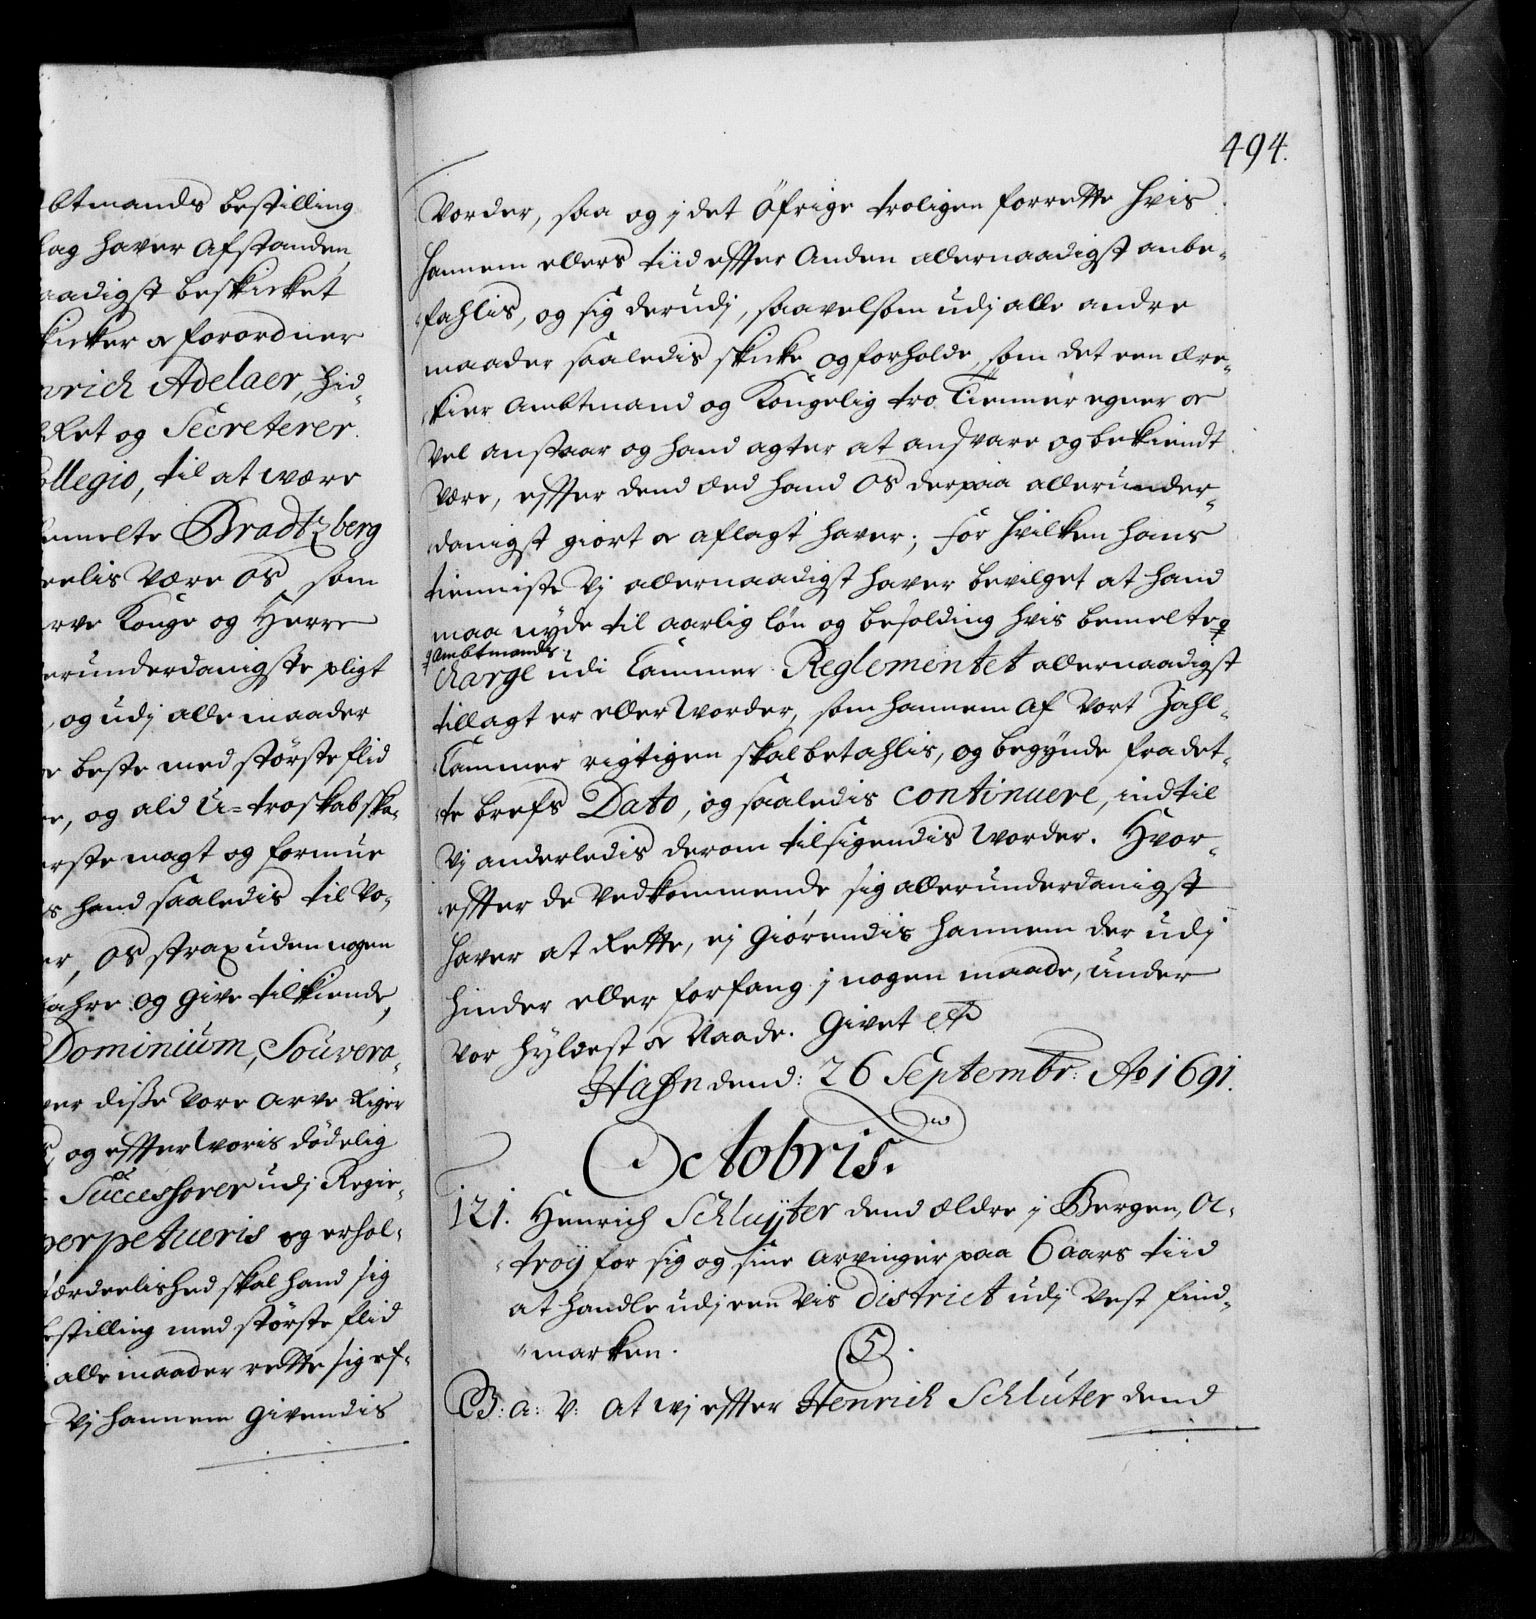 btmands bestilling
lag haver afstanden
aadigst beskicket
kicker oc forordner
nrich Adelaer, hid-
Ret og Secreterer
ollegio, til at være
emelte Bradtzberg
eelis være os som
rve Konge og Herre
erunderdanigste pligt
, og udj alle maader
e beste med største flid
e, og ald U-troskab ska-
erste magt og formue
s hand saaledis til Vo-
er, os strax uden nogen
ahre og give tilkiende,
Dominium, Souvera-
ver disse vore arve Riger
, og effter Voris dødelig
Successorer udj Regie-
perpetueris og erhol-
særdeelished skal hand sig
estilling med største flid
alle maader rette sig ef-
Vj hannem givendis
494.
Vorder, saa og j det öfrige troligen forrette hvis
hannem ellers tiid effter anden allernaadigst anbe-
fahlis, og sig derudj, saavelsom udj alle andre
maader saaledis skicke og forholde, som det een ære-
kier Ambtmand og Kongelig tro Tienner egner oc
vel anstaar og hand agter at andsvare og bekiendt
være, effter dend æed hand os derpaa allerunder-
danigst giort oc aflagt haver; for hvilken hans
tienniste Vj allernaadigst haver bevilget at hand
maa nyde til aarlig løn og besolding hvis bemelte
Ambtmands
charge udi Cammer Reglementet allernaadigst
tillagt er eller worder, som hannem af vort Zahl-
Cammer rigtigen skal betahlis, og begynde fra det-
te brefs Dato, og saaledis continuere, indtil
Vj anderledis derom tilsigendis worder. Hvor-
effter de vedkommende sig allerunderdanigst
haver at rette, ej giørendis hannem der udj
hinder eller forfang j nogen maade, under
vor hyldest oc Naade. Givet etc
Hafn dend: 26 Septembr: Ao 1691.
Octobris.
121. Henrich Schluyter dend ældre j Bergen, oc-
troy for sig og sine arvinger paa 6 aars tiid
at handle udj een vis district udj Vest find-
marken.
5.
C5: a: V: at wj effter Henrich Schluter dend